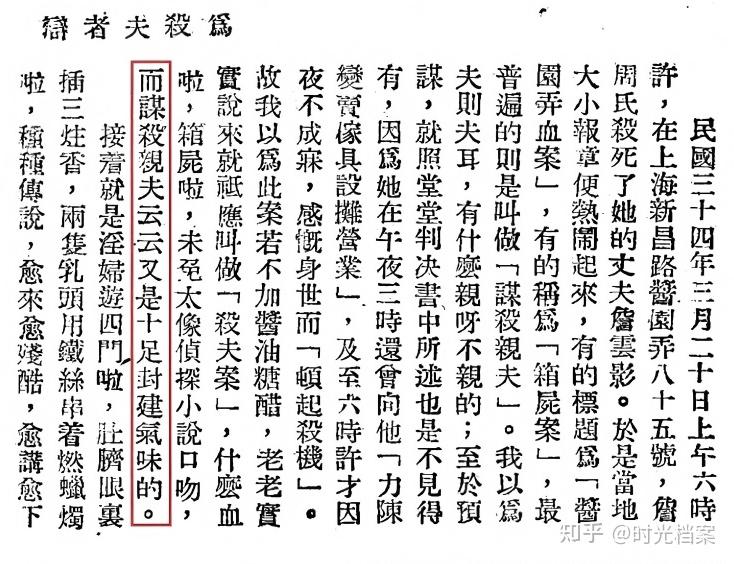 爲殺夫者辯
民國三十四年三月二十日上午六時
許,在上海新昌路醬園弄八十五號,詹
周氏殺死了她的丈夫詹雲影。於是當地
大小報章便熱鬧起來,有的標題爲「醬
園弄血案」,有的稱爲「箱屍案」,最
普遍的則是叫做「謀殺親夫」。我以爲
夫則夫耳,有什麼親呀不親的;至於預
謀,就照堂堂判决書中所述也是不見得
有,因爲她在午夜三時還曾向他「力陳
變賣傢具設攤營業」,及至六時許才因
夜不成寐,感慨身世而「頓起殺機」。
故我以爲此案若不加醬油糖醋,老老實
實說來就祇應叫做「殺夫案」,什麼血
啦,箱屍啦,未免太像偵探小說口吻,
而謀殺親夫云云又是十足封建氣味的。
接着就是淫婦遊四門啦,肚臍眼裏
插三炷香,兩隻乳頭用鐵絲串着燃蠟燭
啦,種種傳說,愈來愈殘酷,愈講愈下
知乎 @时光档案